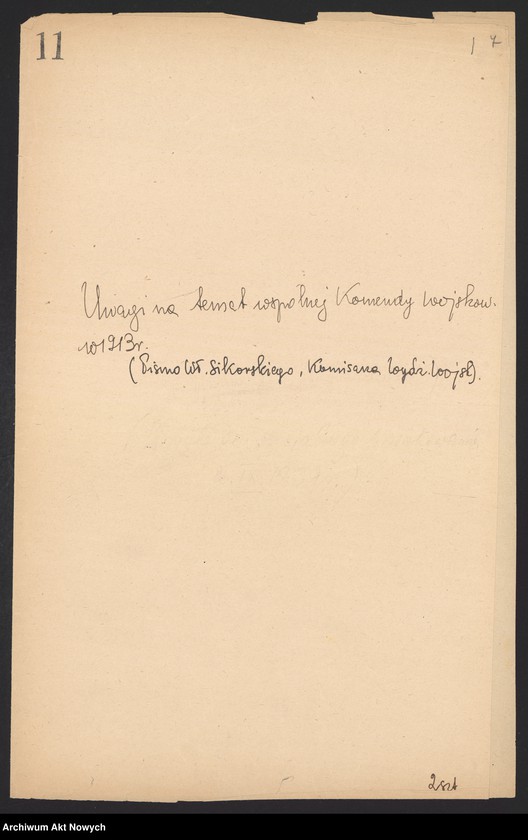 11
1 7
Uwagi na temat wspólnej Komendy wojskow.
w 1913r.
(Pismo Wł. Sikorskiego, Komisarza Wydz. Wojsk).
2 szt
Archiwum Akt Nowych